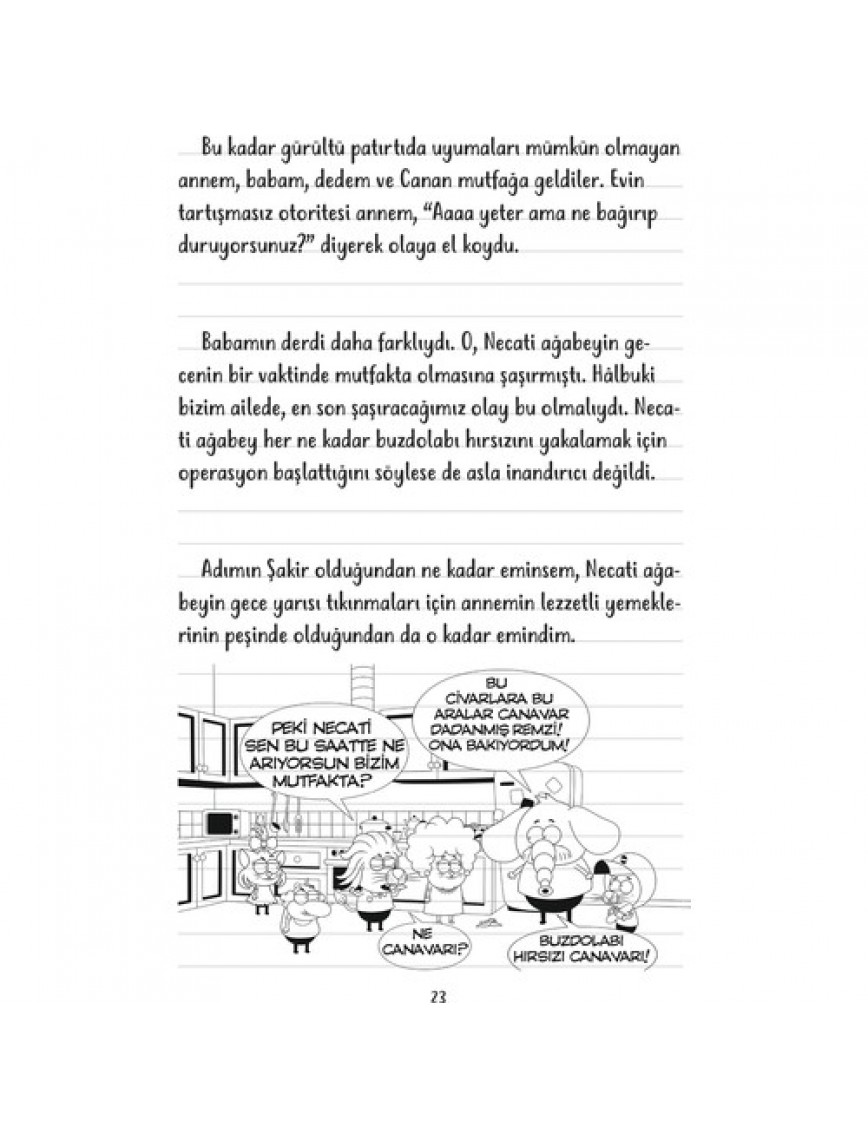 Bu kadar gürültü patırtıda uyumaları mümkün olmayan
annem, babam, dedem ve Canan mutfağa geldiler. Evin
tartışmasız otoritesi annem, “Aaaa yeter ama ne bağırıp
duruyorsunuz?” diyerek olaya el koydu.
Babamın derdi daha farklıydı. O, Necati ağabeyin ge-
cenin bir vaktinde mutfakta olmasına şaşırmıştı. Hâlbuki
bizim ailede, en son şaşıracağımız olay bu olmalıydı. Neca-
ti ağabey her ne kadar buzdolabı hırsızını yakalamak için
operasyon başlattığını söylese de asla inandırıcı değildi.
Adımın Şakir olduğundan ne kadar eminsem, Necati ağa-
beyin gece yarısı tıkınmaları için annemin lezzetli yemekle-
rinin peşinde olduğundan da o kadar emindim.
PEKİ NECATİ
SEN BU SAATTE NE
ARIYORSUN BİZİM
MUTFAKTA?
BU
CİVARLARA BU
ARALAR CANAVAR
DADANMIŞ REMZİ!
ONA BAKIYORDUM!
NE
CANAVARI?
BUZDOLABI
HIRSIZI CANAVARI!
23